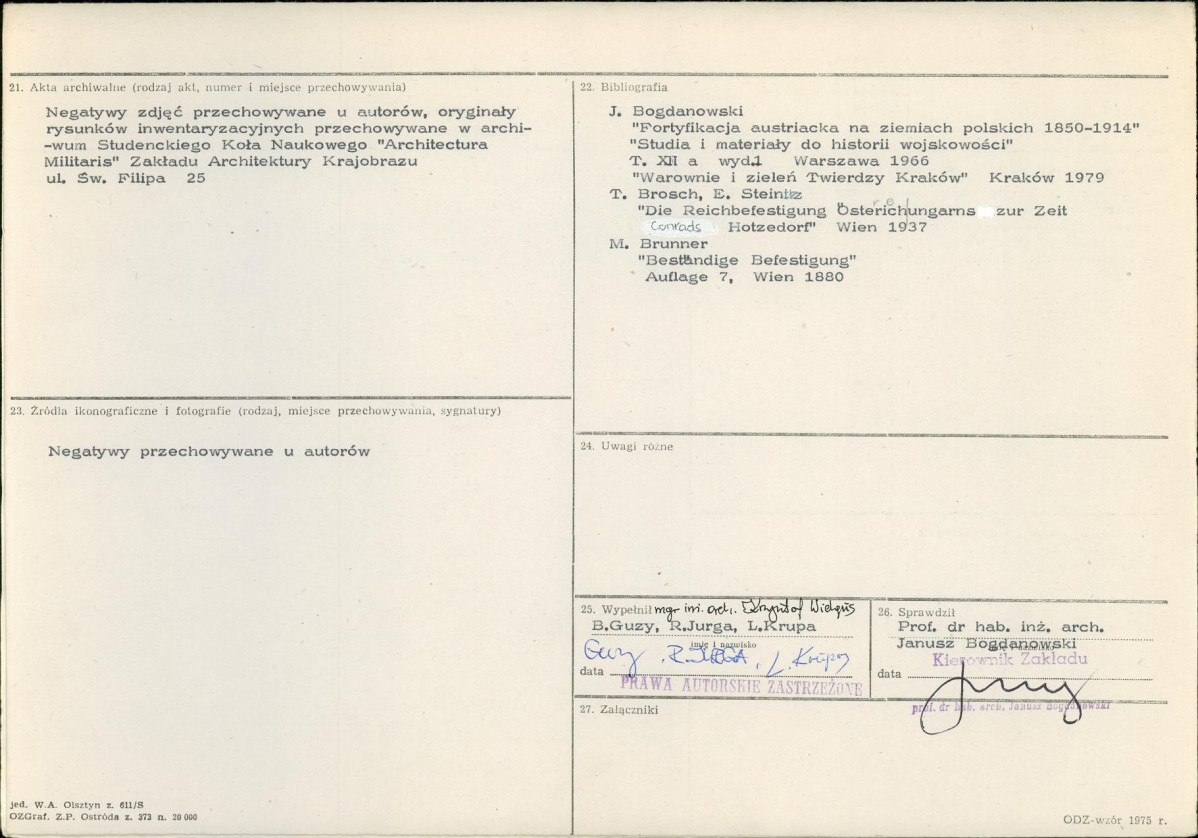 21. Akta archiwalne (rodzaj akt, numer i miejsce przechowywania)
Negatywy zdjęć przechowywane u autorów, oryginały
rysunków inwentaryzacyjnych przechowywane w archi-
-wum Studenckiego Koła Naukowego "Architectura
Militaris" Zakładu Architektury Krajobrazu
ul. Św. Filipa 25
22. Bibliografia
J. Bogdanowski
"Fortyfikacja austriacka na ziemiach polskich 1850-1914"
"Studia i materiały do historii wojskowości"
T. XII a wyd.1 Warszawa 1966
"Warownie i zieleń Twierdzy Kraków" Kraków 1979
T. Brosch, E. Steinitz
"Die Reichbefestigung Österreichungarns zur Zeit
Conrads Hotzedorf" Wien 1937
M. Brunner
"Beständige Befestigung"
Auflage 7, Wien 1880
23. Źródła ikonograficzne i fotografie (rodzaj, miejsce przechowywania, sygnatury)
Negatywy przechowywane u autorów
24. Uwagi różne
25. Wypełnił mgr inż. arch. Krzysztof Wielgus
B.Guzy, R.Jurga, L.Krupa
imię i nazwisko
Guzy, R.JURGA, L.Krupa
data
PRAWA AUTORSKIE ZASTRZEŻONE
26. Sprawdził
Prof. dr hab. inż. arch.
Janusz Bogdanowski
Kierownik Zakładu
data
prof. dr hab. arch. Janusz Bogdanowski
27. Załączniki
jed. W.A. Olsztyn z. 611/S
OZGraf. Z.P. Ostróda z. 373 n. 20 000
ODZ-wzór 1975 r.